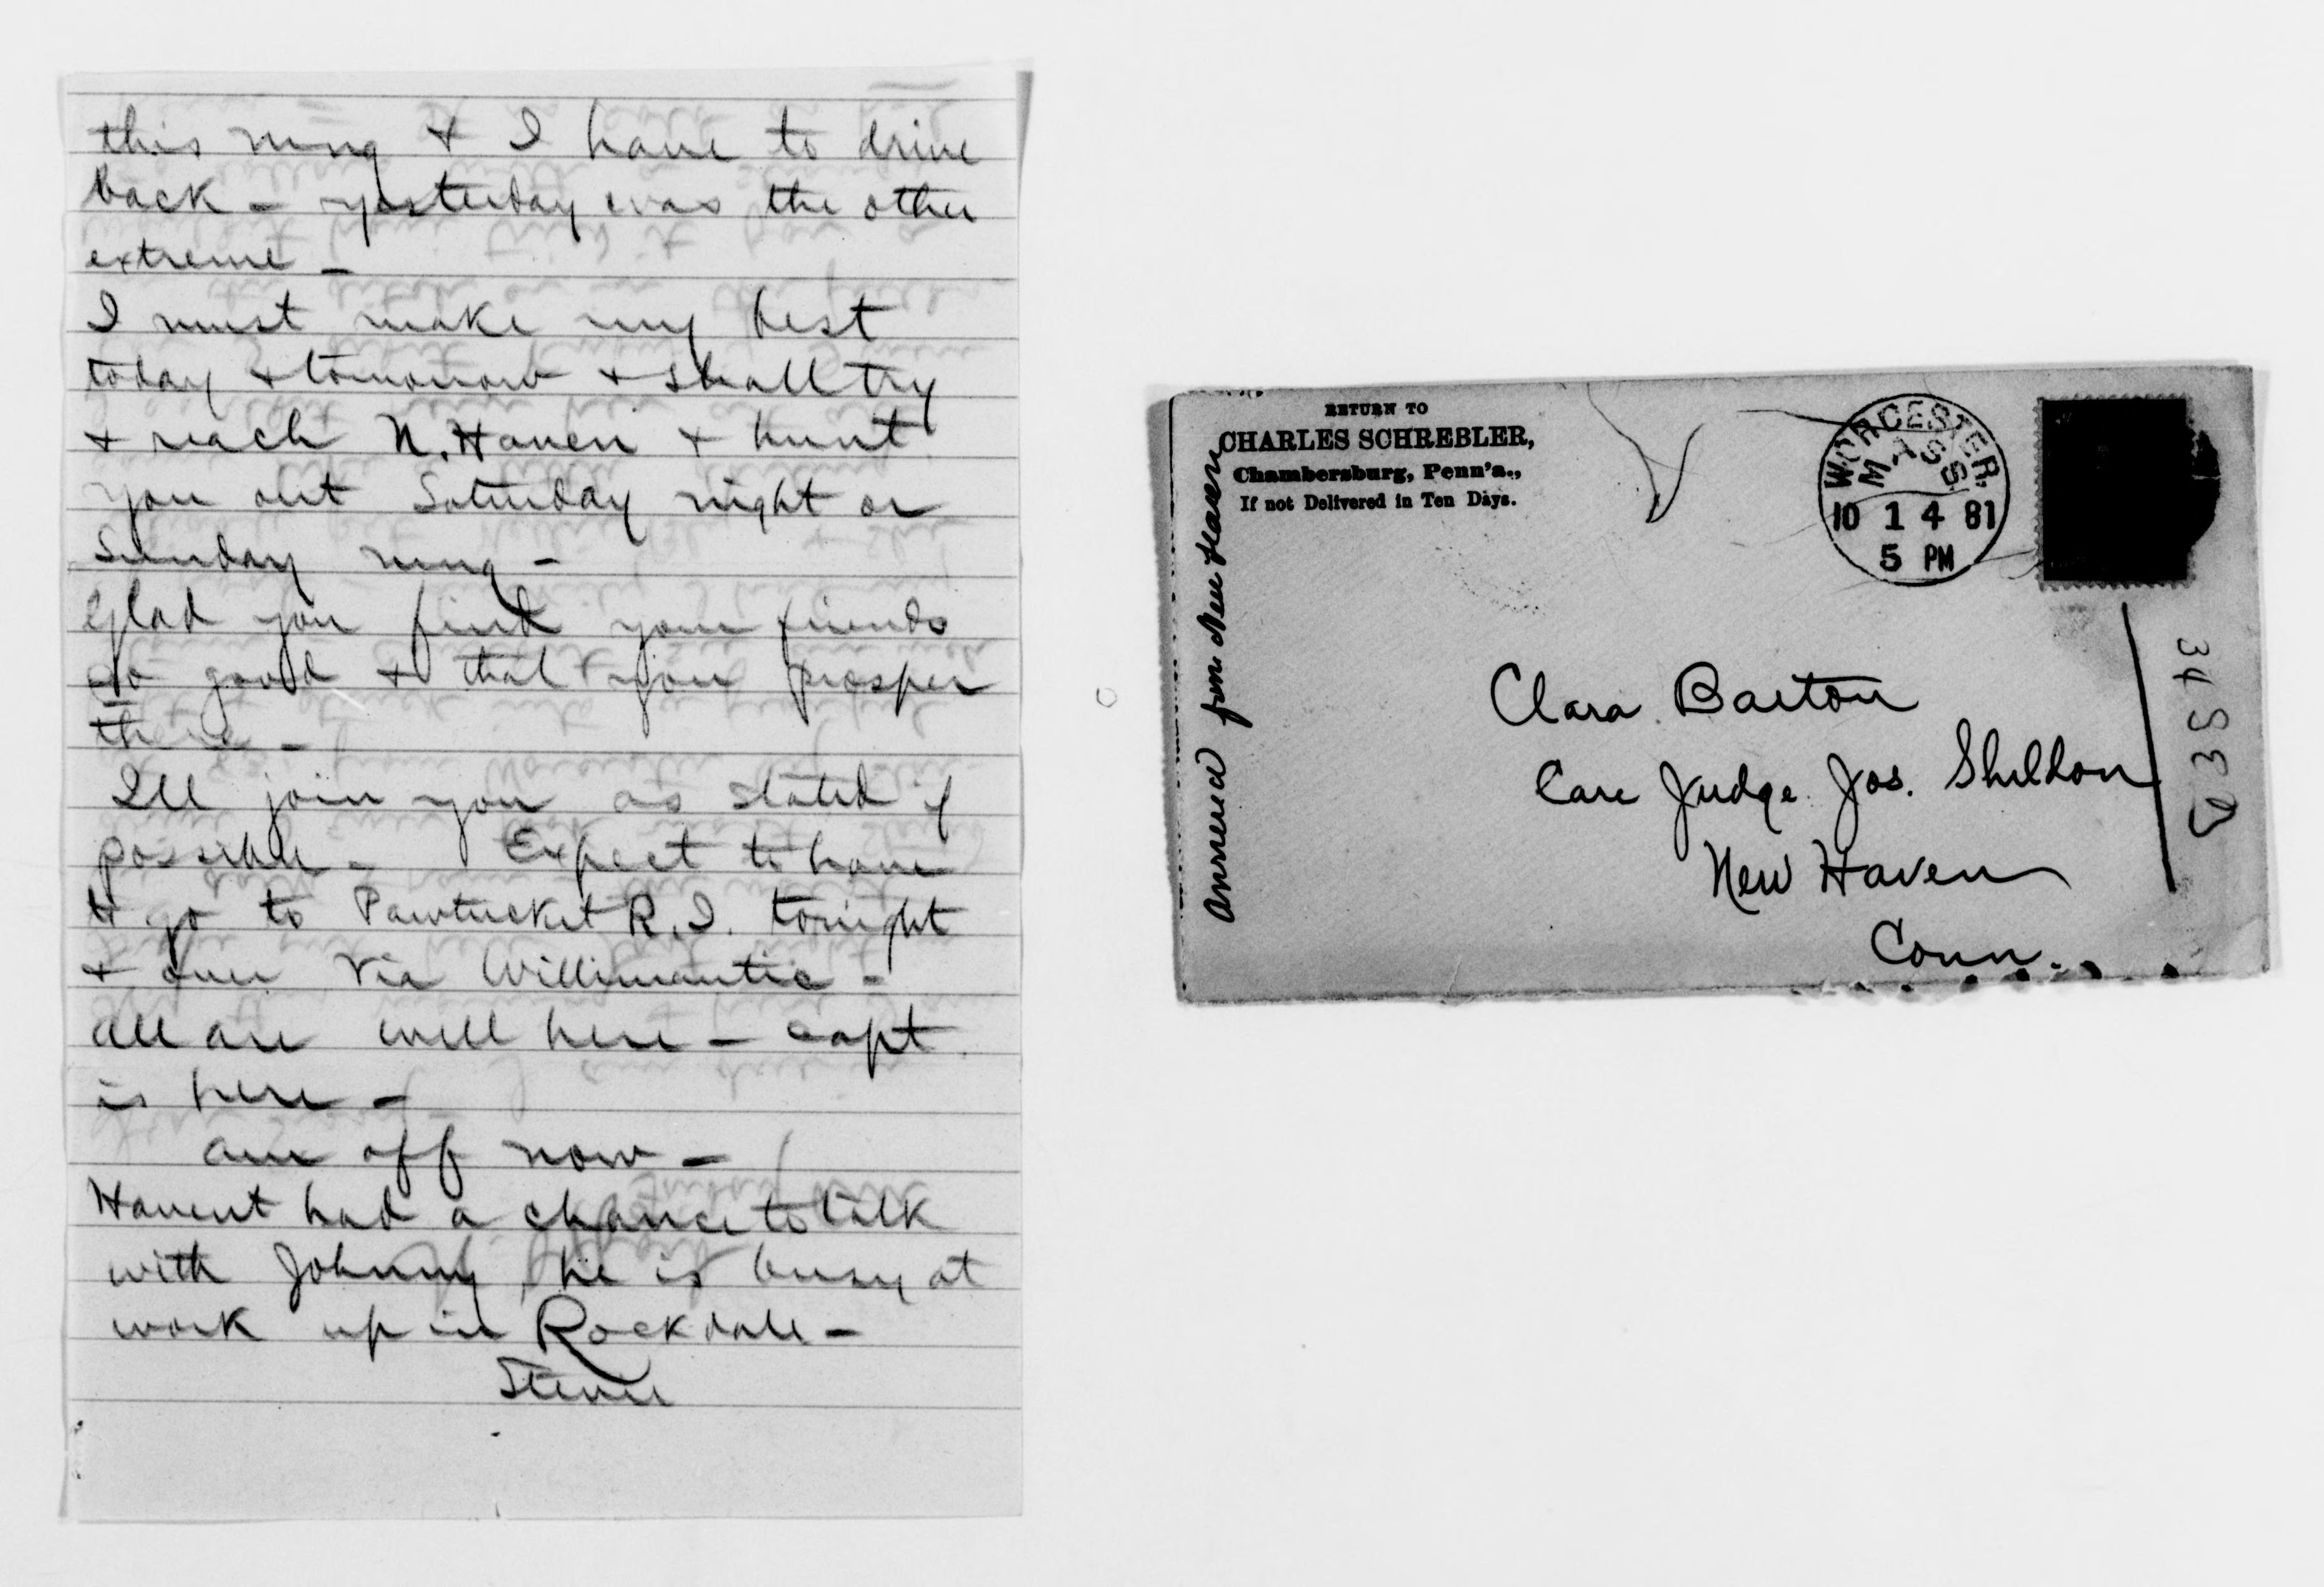 this mng + I have to drive
back - yesterday was the other
extreme -
I must make my best
today + tomorrow + shall try
+ reach N. Haven + hunt
you out Saturday night or
Sunday mng -
Glad you find your friends
so good + that you prosper
there -
I'll join you as stated if
possible - Expect to have
to go to Pawtucket R.I. tonight
+ over via Willimantic -
all are well here - capt.
is here -
am off now -
Havent had a chance to talk
with Johnny he is busy at
work up in Rockdale -
Stevie
RETURN TO
CHARLES SCHREBLER,
Chambersburg, Penn'a.,
If not Delivered in Ten Days.
Answered from New Haven
WORCESTER.
MASS.
10 14 81
5 PM
Clara Barton
Care Judge Jos. Sheldon
New Haven
Conn.